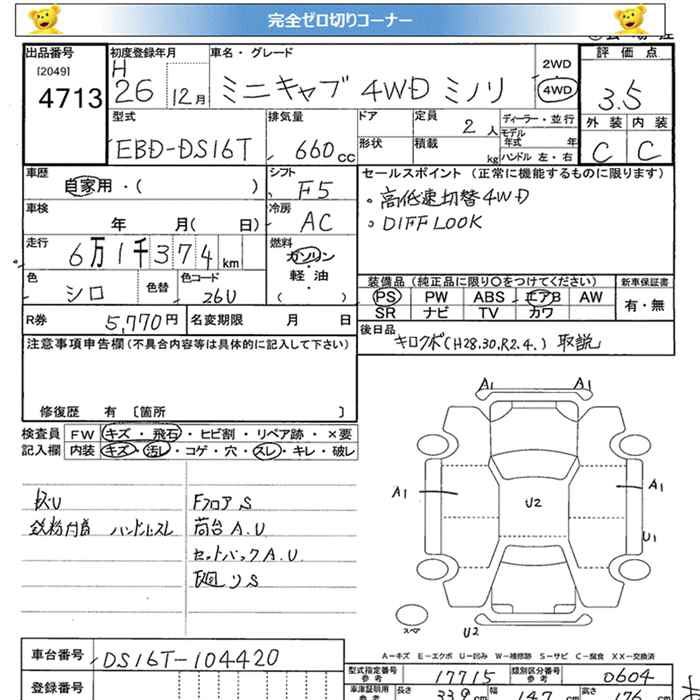 完全ゼロ切りコーナー
出品番号 初度登録年月 車名・グレード 評価点
[2049] 4713 H26 12月 ミニキャブ 4WD ミノリ 2WD 4WD 3.5
外装 内装
C C
型式 排気量 ドア 定員 2人 ディーラー・並行
EBD-DS16T 660cc 形状 積載 kg モデル年式 年
ハンドル 左・右
車歴 自家用・( ) シフト F5 セールスポイント (正常に機能するものに限ります)
。高低速切替4WD
。DIFF LOOK
車検 年 月( 日) 冷房 AC
走行 6万1千374km 燃料 ガソリン・軽油 ( )
色 シロ 色替 色コード 26U
装備品 (純正品に限り○をつけてください) 新車保証書
PS PW ABS エアB AW 有・無
SR ナビ TV カワ
R券 5,770円 名変期限 月 日
後日品 キロクボ(H28.30.R2.4.) 取説
注意事項申告欄(不具合内容等は具体的に記入して下さい)
修復歴 有 〔箇所 〕
検査員 FW キズ・飛石・ヒビ割・リペア跡・×要
記入欄 内装 キズ・汚レ・コゲ・穴・スレ・キレ・破レ
A1 A1
A1 A1
U2
U1
Fフロア S
鉄粉付着 ハンドルスレ 荷台 A.U
セットバック A.U
廻リ S
スペア U2
A-キズ E-エクボ U-凹み W-補修跡 S-サビ C-腐食 XX-交換済
車台番号 DS16T-104420
型式指定番号 参考 17715 類別区分番号 参考 0604
登録番号
車庫証明用 参考 長さ 339 幅 147 高さ 176